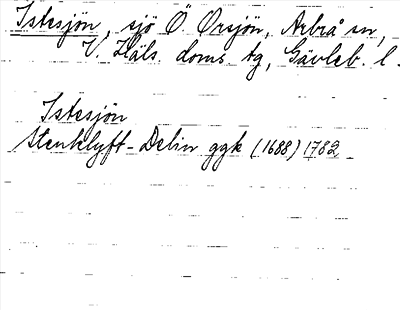 Istesjön, sjö Ö. Orsjön, Arbrå sn,
V. Häls. doms. tg, Gävleb. l.
Istesjön
Stenklyft-Delin ggk (1688) 1782